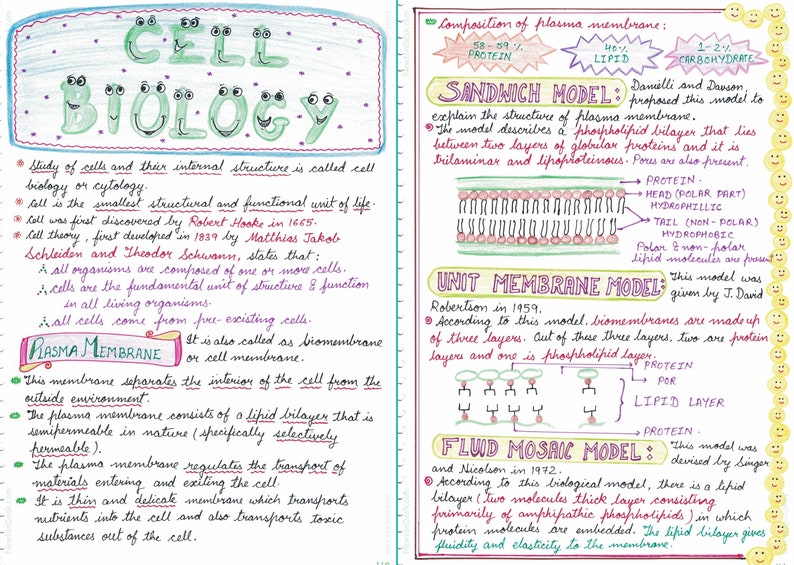 CELL
BIOLOGY
Study of cells and their internal structure is called cell
biology or cytology.
Cell is the smallest structural and functional unit of life.
Cell was first discovered by Robert Hooke in 1665.
Cell theory, first developed in 1839 by Matthias Jakob
Schleiden and Theodor Schwann, states that :
all organisms are composed of one or more cells.
cells are the fundamental unit of structure & function
in all living organisms.
all cells come from pre-existing cells.
PLASMA MEMBRANE
It is also called as biomembrane
or cell membrane.
This membrane separates the interior of the cell from the
outside environment.
The plasma membrane consists of a lipid bilayer that is
semipermeable in nature (specifically selectively
permeable).
The plasma membrane regulates the transport of
materials entering and exiting the cell.
It is thin and delicate membrane which transports
nutrients into the cell and also transports toxic
substances out of the cell.
Composition of plasma membrane :
58-59% PROTEIN
40% LIPID
1-2% CARBOHYDRATE
SANDWICH MODEL:
Danielli and Davson,
proposed this model to
explain the structure of plasma membrane.
The model describes a phospholipid bilayer that lies
between two layers of globular proteins and it is
trilaminar and lipoproteinous. Pores are also present.
PROTEIN.
HEAD (POLAR PART)
HYDROPHILLIC
TAIL (NON-POLAR)
HYDROPHOBIC
Polar & non-polar
lipid molecules are present
UNIT MEMBRANE MODEL:
This model was
given by J. David
Robertson in 1959.
According to this model, biomembranes are made up
of three layers. Out of these three layers, two are protein
layers and one is phospholipid layer.
PROTEIN
POR
LIPID LAYER
PROTEIN.
FLUID MOSAIC MODEL:
This model was
devised by Singer
and Nicolson in 1972.
According to this biological model, there is a lipid
bilayer (two molecules thick layer consisting
primarily of amphipathic phospholipids) in which
protein molecules are embedded. The lipid bilayer gives
fluidity and elasticity to the membrane.